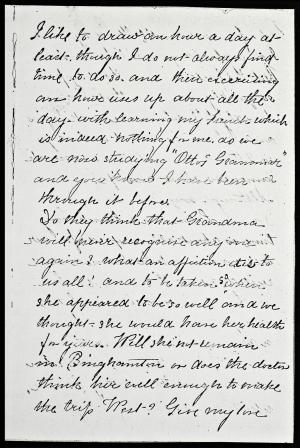 I like to draw an hour a day at
least - though I do not always find
time to do so. and then reciting
an hour uses up about all the
day with learning my which
is indeed nothing for me, as we
are now studying "Otto's Grammar"
and you know I have been
through it before
Do they think that Grandma
will never recognise any
again? what an affliction it is to
us all! and to be taken when
she appeared to be so well and we
thought - she would have her health
for years. Will she not remain
in Binghamton or does the doctor
think her well enough to make
the trip West-? Give my love